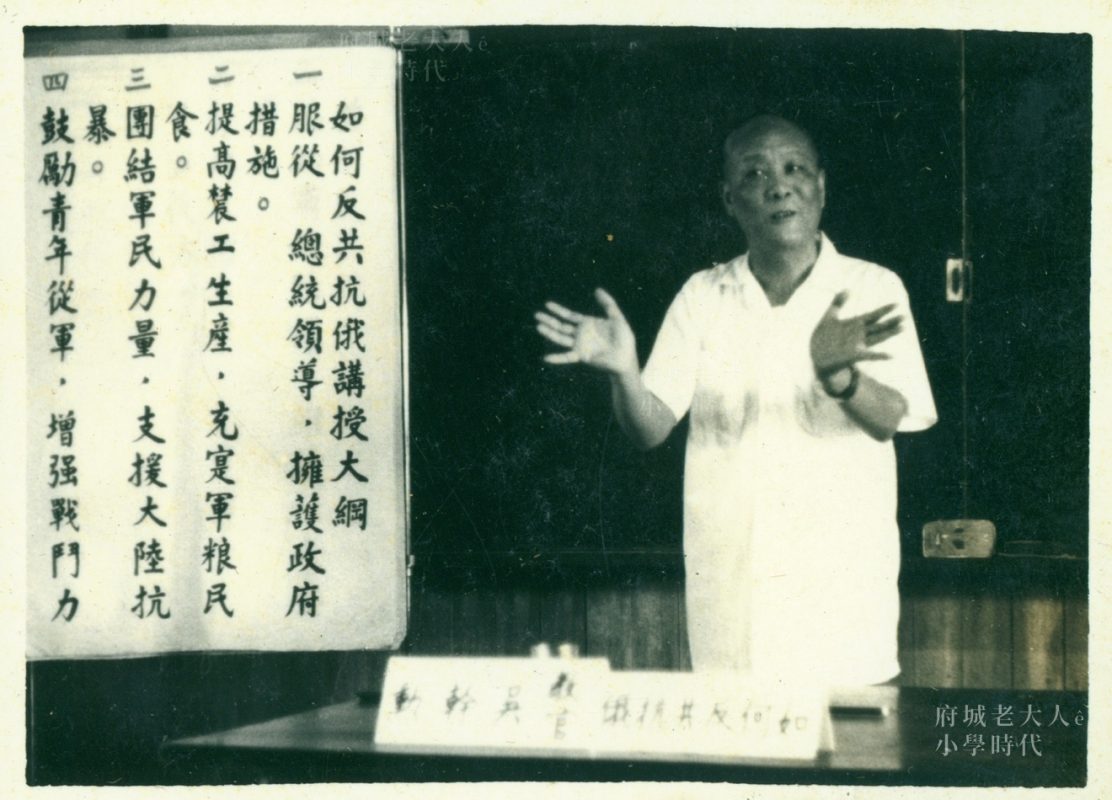 如何反共抗俄講授大綱
一 服從 總統領導,擁護政府
措施。
二 提高農工生産,充寔軍粮民
食。
三 團結軍民力量,支援大陸抗
暴。
四 鼓勵青年從軍,增强戰鬥力
如何反共抗俄
教官 吳幹勳
府城老大人ê
小學時代
府城老大人ê
小學時代